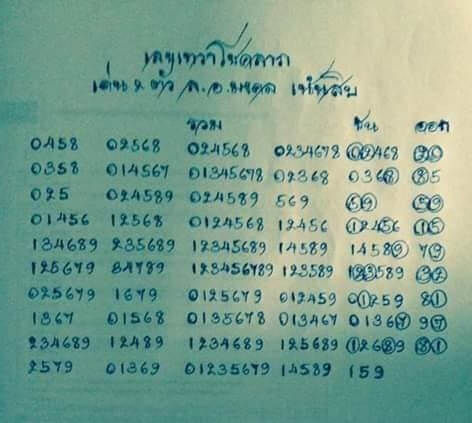 เลขเทวาโชคลาภ
เด่น 2 ตัว ล.อ.มงคล เน้นสิบ
รวม ชน ออก
0458 02568 024568 0234678 02468 20
0358 014567 01345678 02368 0368 85
025 024589 024589 569 59 59
01456 12568 0124568 12456 12456 15
134689 235689 12345689 14589 14589 79
125679 34789 123456789 123589 123589 32
025679 1679 0125679 012459 01259 81
1367 01568 0135678 013467 01367 97
234689 12489 1234689 125689 12689 81
2579 01369 01235679 14589 159